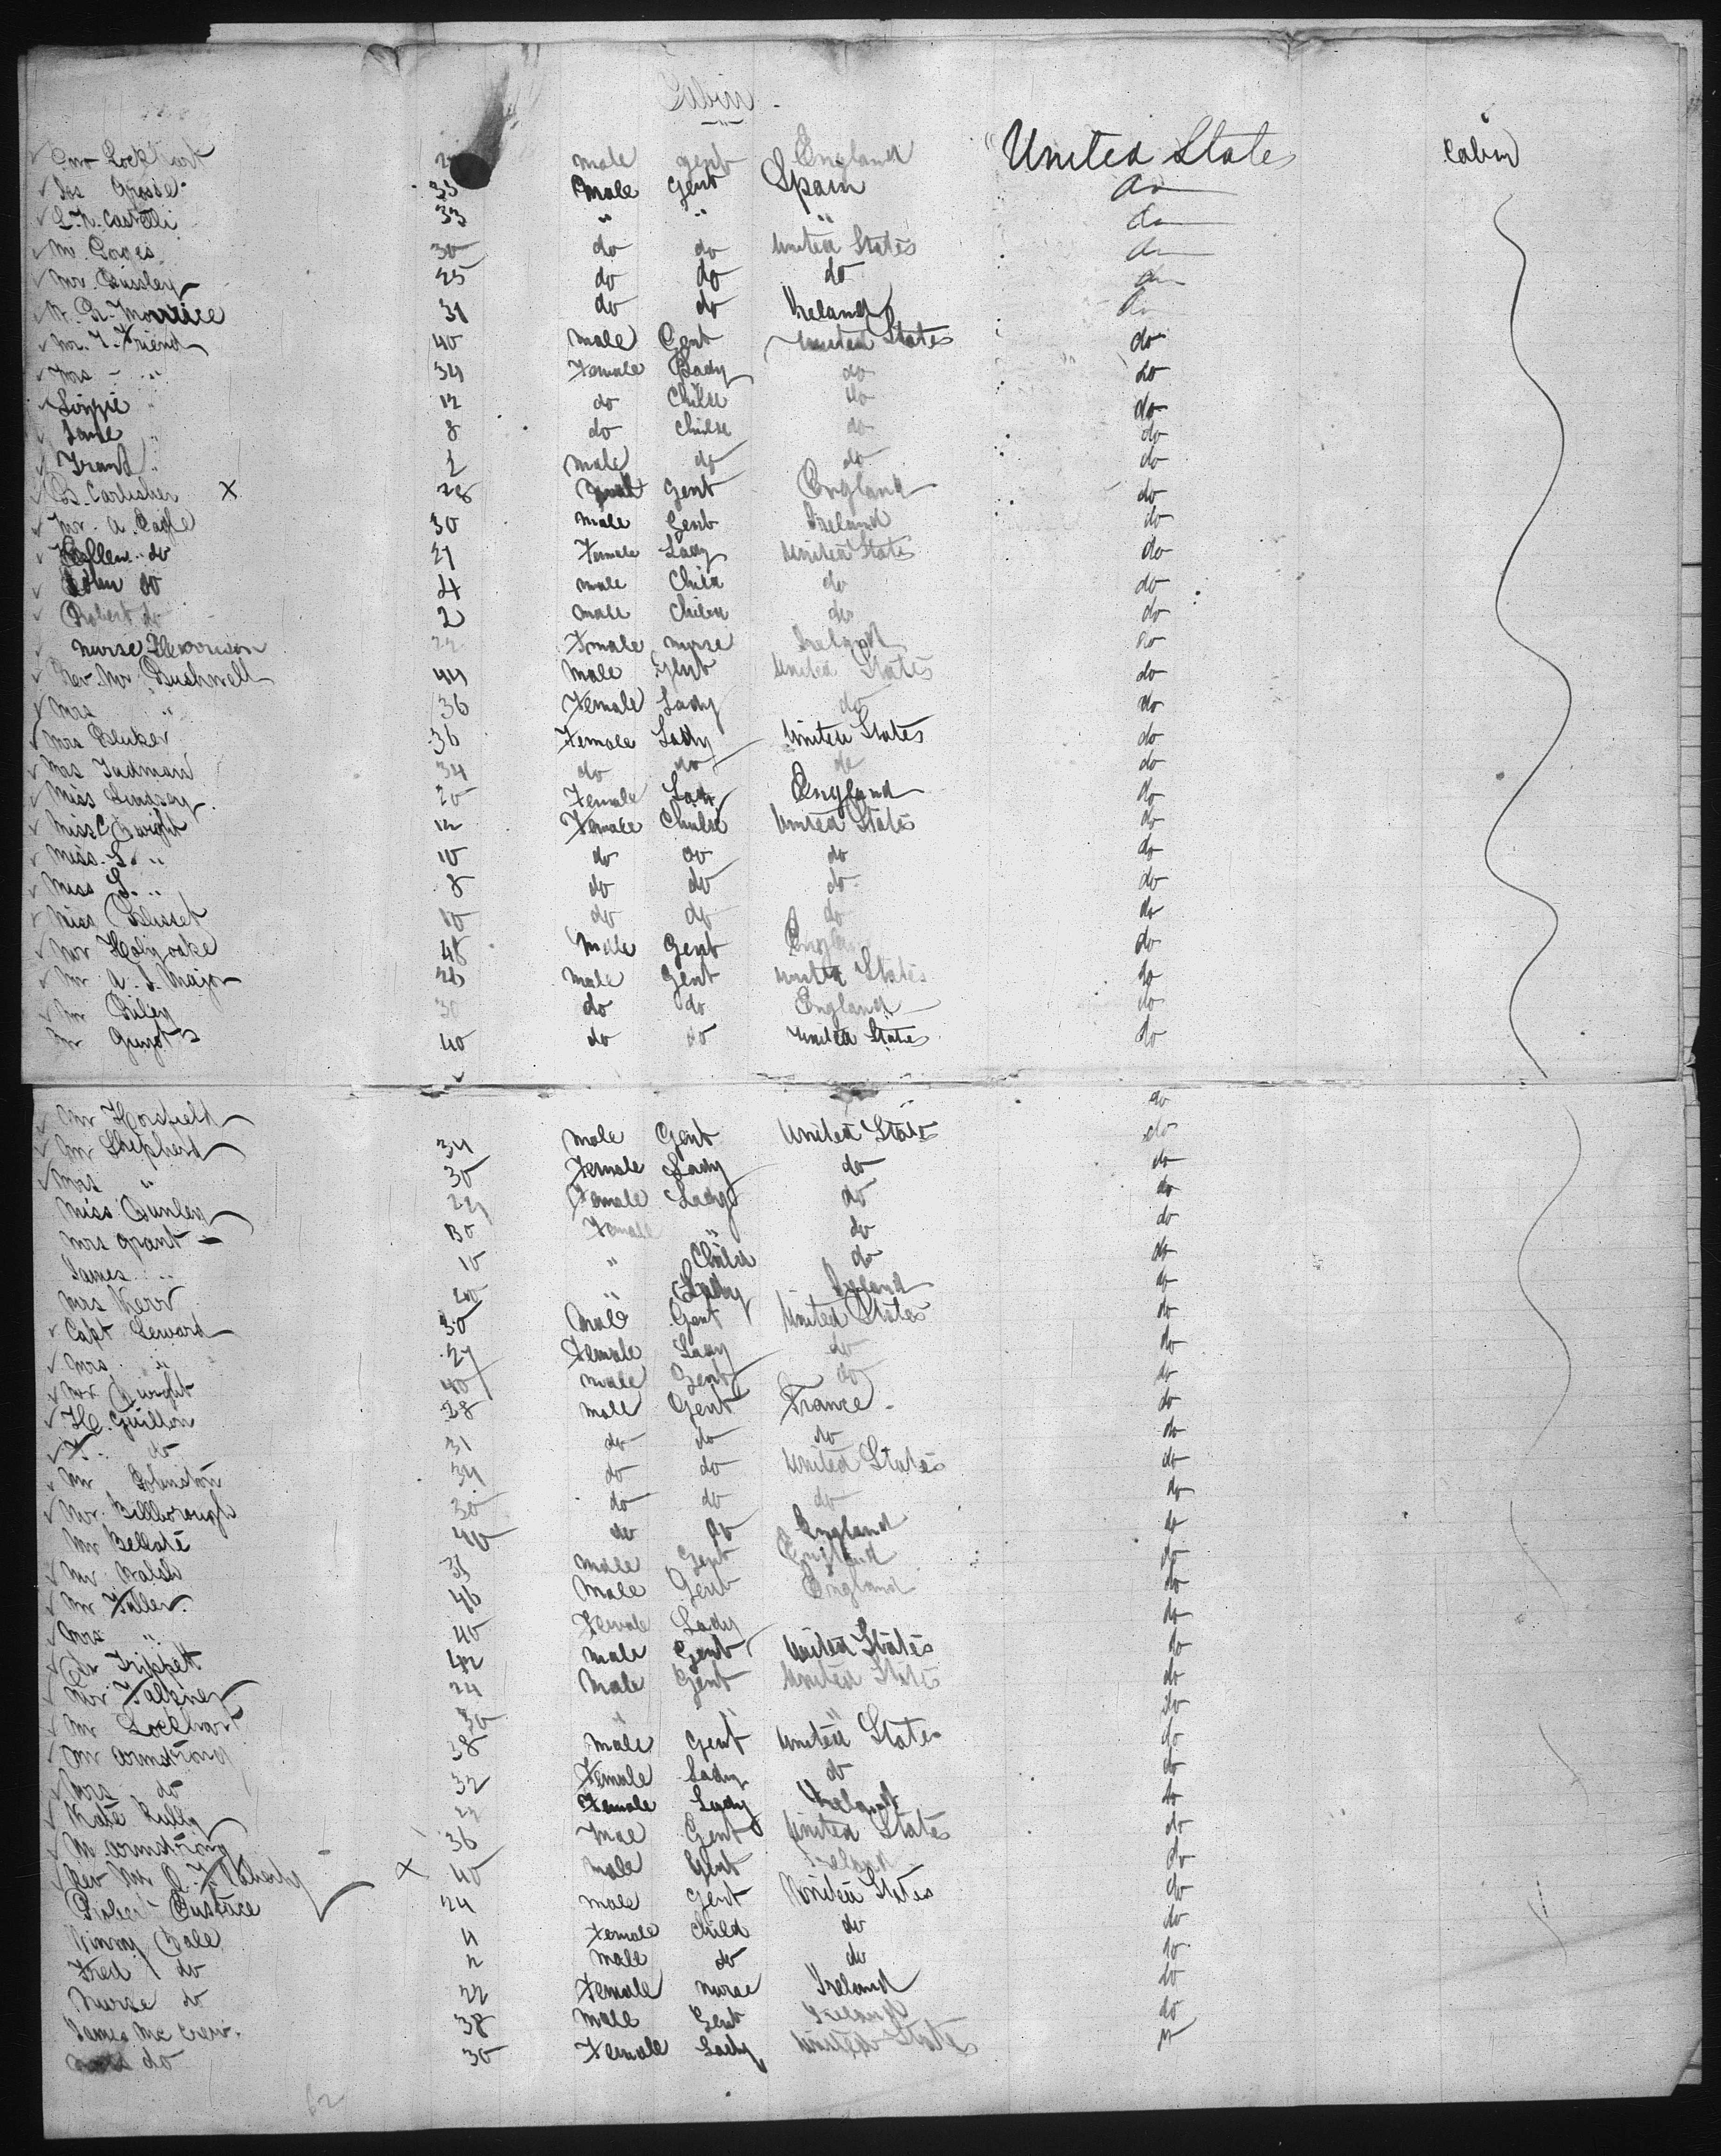 Cabin
Lockhart male gent England United States Cabin
Jos Grosse 35 male Gent Spain do
Castelli 33 " " " do
Mr. 30 do do United States do
Mr. 25 do do do do
31 do do Ireland do
Mr. T. Friend 40 male Gent United States do
Mrs " 34 Female Lady do do
Lizzie " 12 do Child do do
Jane " 8 do Child do do
Frank " 2 male do do do
X 28 Gent England do
Mr. A. 30 male Gent Ireland do
do 27 Female Lady United States do
John do 4 male Child do do
Robert do 2 male Child do do
Nurse Harrison 22 Female nurse Ireland do
Rev. Mr Bushnell 44 male gent United States do
Mrs " 36 Female Lady do do
Mrs 36 Female Lady United States do
Mrs Tudman 34 do do do do
Miss Lindsay 20 Female Lady England do
Miss C Dwight 12 Female Child United States do
Miss. S. " 10 do do do do
Miss S. " 8 do do do do
Miss Blisset 10 do do do do
Mr Holyoake 48 male Gent England do
Mr A. S. Major 26 male Gent United States do
Mr Riley 30 do do England do
Mr 40 do do United States do
Mr Horsfield do
Mr Shepherd 34 male Gent United States do
Mrs " 30 Female Lady do do
Miss 24 Female Lady do do
Mrs Grant 30 Female " do do
James " 10 " Child do do
Mrs Kerr 20 " Lady Ireland do
Capt Seward 30 Male Gent United States do
Mrs " 27 Female Lady do do
Mr Dwight 40 male Gent do do
H. Guillon 28 male Gent France do
F. do 31 do do do do
Mr Johnston 34 do do United States do
Mr. Billborough 30 do do do do
Mr Bellate 40 do do England do
Mr Walsh 35 male Gent England do
Mr Fuller 46 Male Gent England do
Mrs " 40 Female Lady do
Trippett 42 male Gent United States do
Mr Falkner 24 male Gent United States do
Mr Lockhart 30 " " " do
Mr Armstrong 38 male Gent United States do
Mrs do 32 Female Lady do do
Kate 22 Female Lady Ireland do
M. Armstrong 36 Gent United States do
Rev Mr X 40 male Gent Ireland do
Robert Eustace 24 male Gent United States do
4 Female Child do do
Fred do 2 male do do do
Nurse do 22 Female nurse Ireland do
James Mc 38 male Gent Ireland do
do 30 Female Lady United States